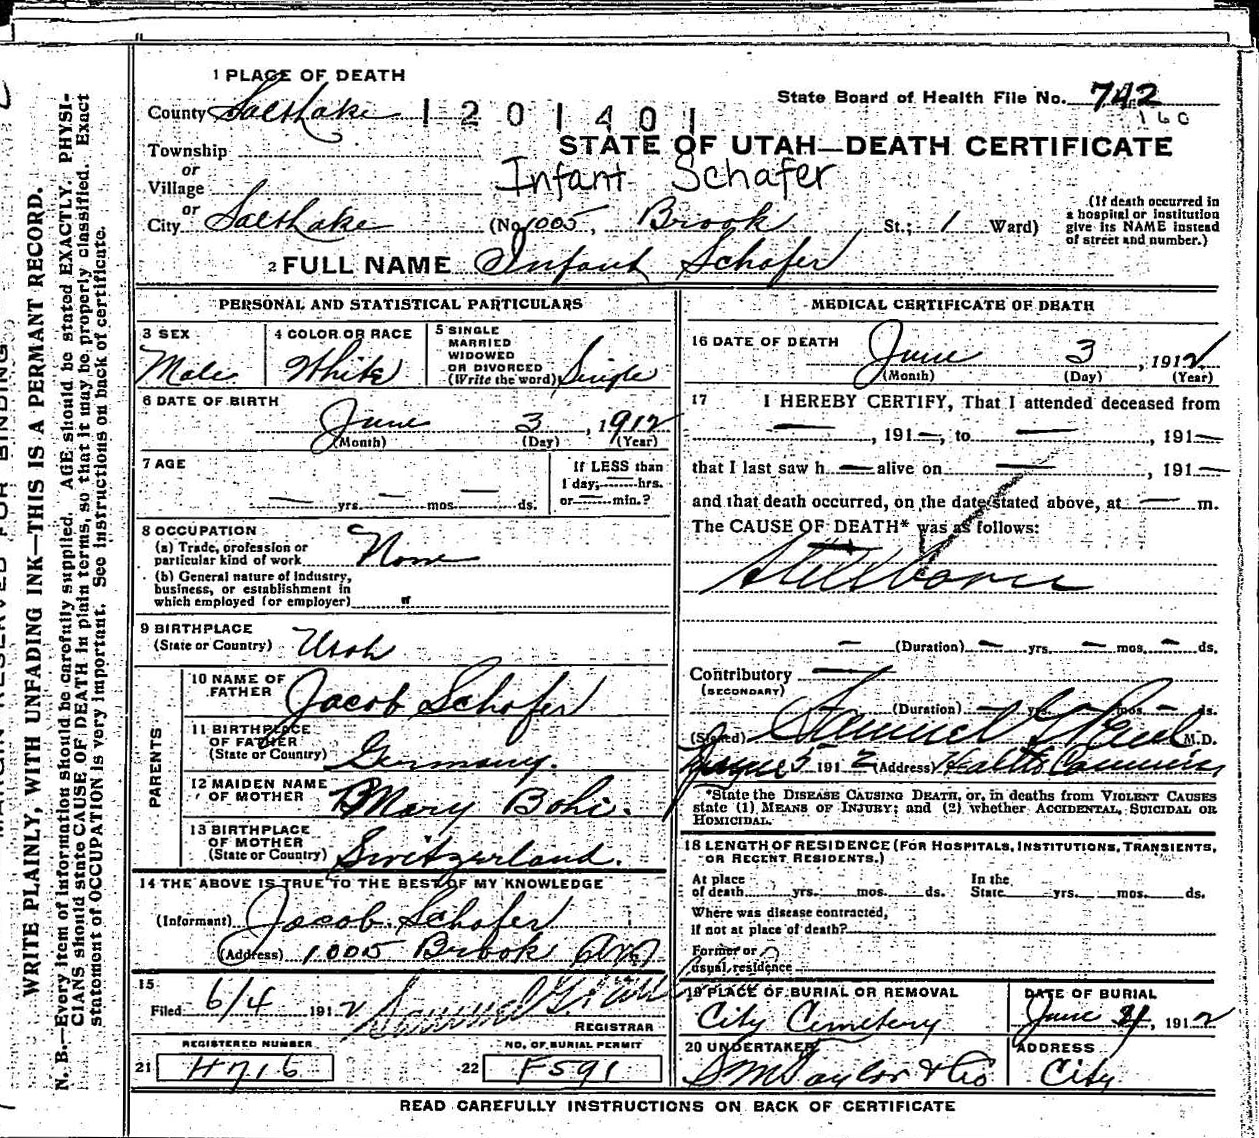 1 PLACE OF DEATH
County Salt Lake 1 2 0 1 4 0 1
State Board of Health File No. 742
160
Township
or
Village
or
City Salt Lake
STATE OF UTAH—DEATH CERTIFICATE
Infant Schafer
(No. 1005, Brook St.; 1 Ward)
(If death occurred in
a hospital or institution
give its NAME instead
of street and number.)
2 FULL NAME Infant Schafer
PERSONAL AND STATISTICAL PARTICULARS
3 SEX
Male
4 COLOR OR RACE
White
5 SINGLE
MARRIED
WIDOWED
OR DIVORCED
(Write the word) Single
6 DATE OF BIRTH
June 3, 1912
(Month) (Day) (Year)
7 AGE
— yrs. — mos. — ds.
If LESS than
1 day, — hrs.
or — min.?
8 OCCUPATION
(a) Trade, profession or
particular kind of work None
(b) General nature of industry,
business, or establishment in
which employed (or employer) "
9 BIRTHPLACE
(State or Country) Utah
PARENTS
10 NAME OF
FATHER Jacob Schafer
11 BIRTHPLACE
OF FATHER
(State or Country) Germany.
12 MAIDEN NAME
OF MOTHER Mary Bohi.
13 BIRTHPLACE
OF MOTHER
(State or Country) Switzerland.
14 THE ABOVE IS TRUE TO THE BEST OF MY KNOWLEDGE
(Informant) Jacob Schafer
(Address) 1005 Brook Ave
15
Filed 6/4 1912 Samuel G. Paul
REGISTRAR
REGISTERED NUMBER
21 H716
NO. OF BURIAL PERMIT
22 F591
MEDICAL CERTIFICATE OF DEATH
16 DATE OF DEATH June 3, 1912
(Month) (Day) (Year)
17 I HEREBY CERTIFY, That I attended deceased from
—, 191—, to —, 191—
that I last saw h— alive on —, 191—
and that death occurred, on the date stated above, at — m.
The CAUSE OF DEATH* was as follows:
Stillborn
— (Duration) — yrs. — mos. — ds.
Contributory —
(SECONDARY)
(Duration) — yrs. — mos. — ds.
(Signed) Samuel G. Paul M.D.
June 5 1912 (Address) Health Commiss
*State the DISEASE CAUSING DEATH, or, in deaths from VIOLENT CAUSES
state (1) MEANS OF INJURY; and (2) whether ACCIDENTAL, SUICIDAL OR
HOMICIDAL.
18 LENGTH OF RESIDENCE (FOR HOSPITALS, INSTITUTIONS, TRANSIENTS,
OR RECENT RESIDENTS.)
At place In the
of death yrs. mos. ds. State yrs. mos. ds.
Where was disease contracted,
if not at place of death?
Former or
usual residence
19 PLACE OF BURIAL OR REMOVAL
City Cemetery
DATE OF BURIAL
June 4, 1912
20 UNDERTAKER
S M Taylor & Co
ADDRESS
City
READ CAREFULLY INSTRUCTIONS ON BACK OF CERTIFICATE
MARGIN RESERVED FOR BINDING
WRITE PLAINLY, WITH UNFADING INK—THIS IS A PERMANT RECORD.
N. B.—Every item of information should be carefully supplied. AGE should be stated EXACTLY. PHYSI-
CIANS should state CAUSE OF DEATH in plain terms, so that it may be properly classified. Exact
statement of OCCUPATION is very important. See instructions on back of certificate.